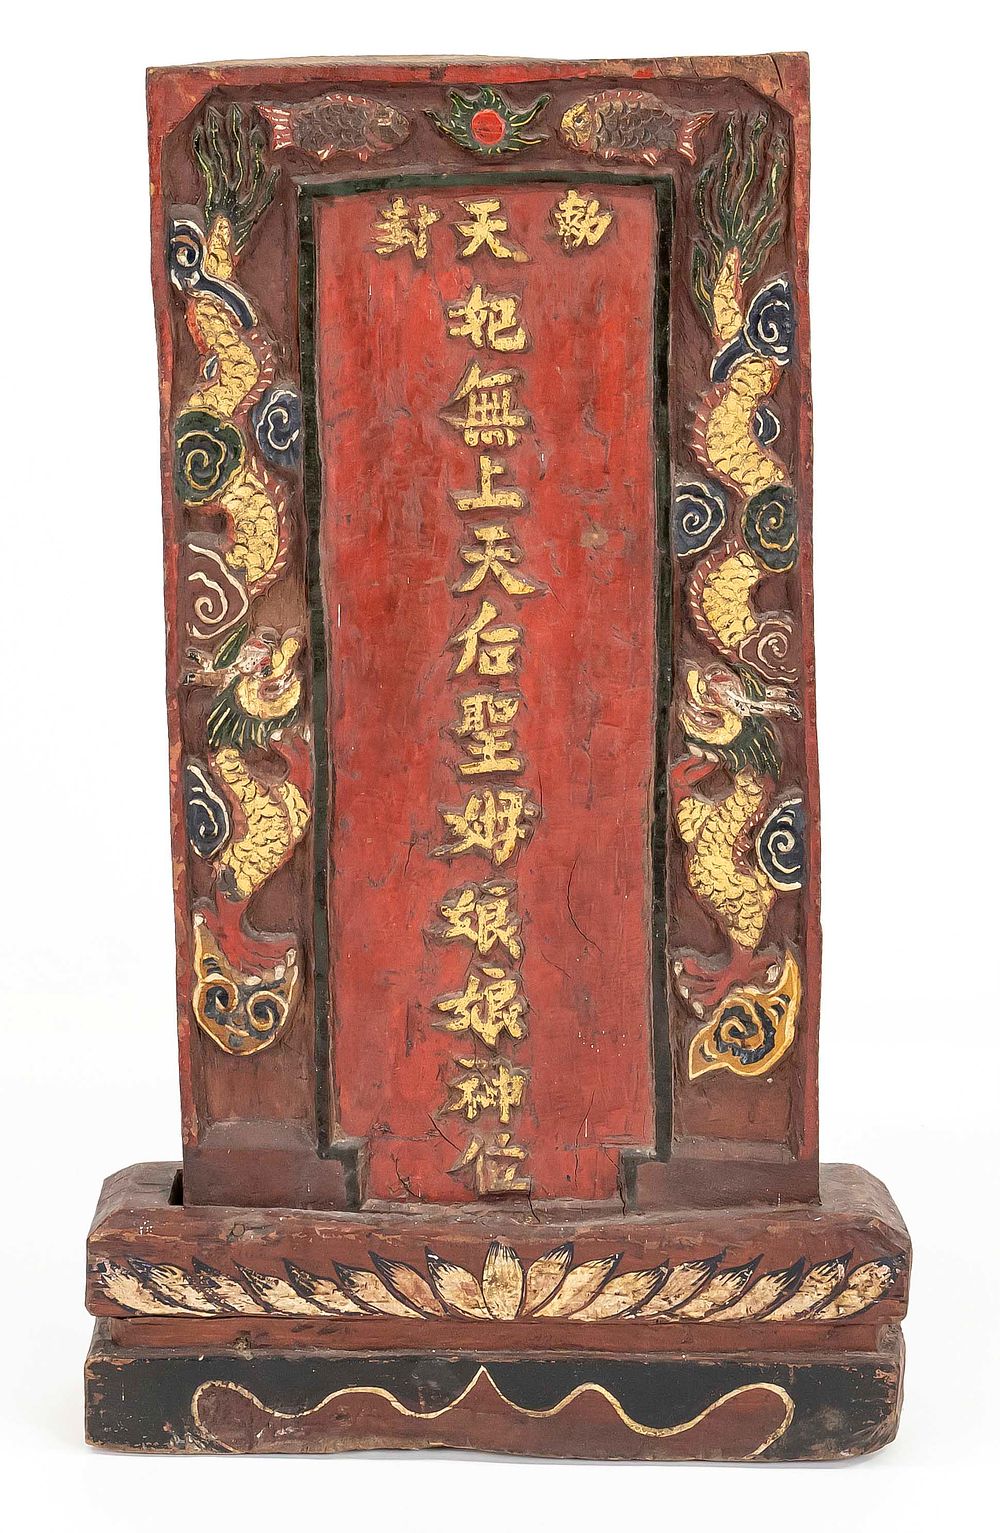 勅封
天妃無上天后聖母娘娘神位